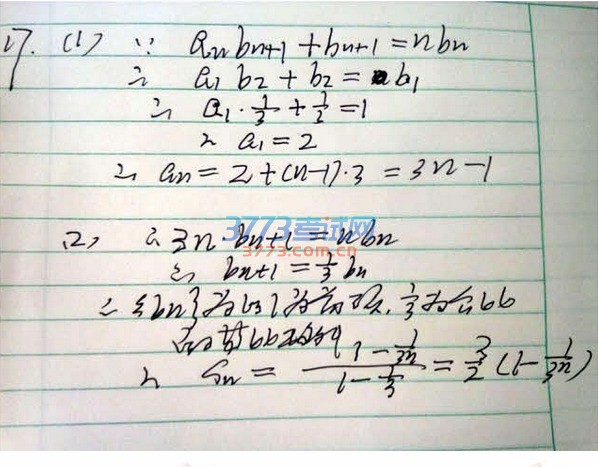 17. (1) ∵ aₙbₙ₊₁ + bₙ₊₁ = nbₙ
∴ a₁b₂ + b₂ = b₁
∴ a₁·1/3 + 1/3 = 1
∴ a₁ = 2
∴ aₙ = 2 + (n-1)·3 = 3n-1
3773考试网
3773.com.cn
(2) ∴ 3n·bₙ₊₁ = nbₙ
∴ bₙ₊₁ = 1/3 bₙ
∴ {bₙ}为以1为首项, 1/3为公比
的等比数列
∴ Sₙ = (1 - 1/3ⁿ)/(1 - 1/3) = 3/2 (1 - 1/3ⁿ)